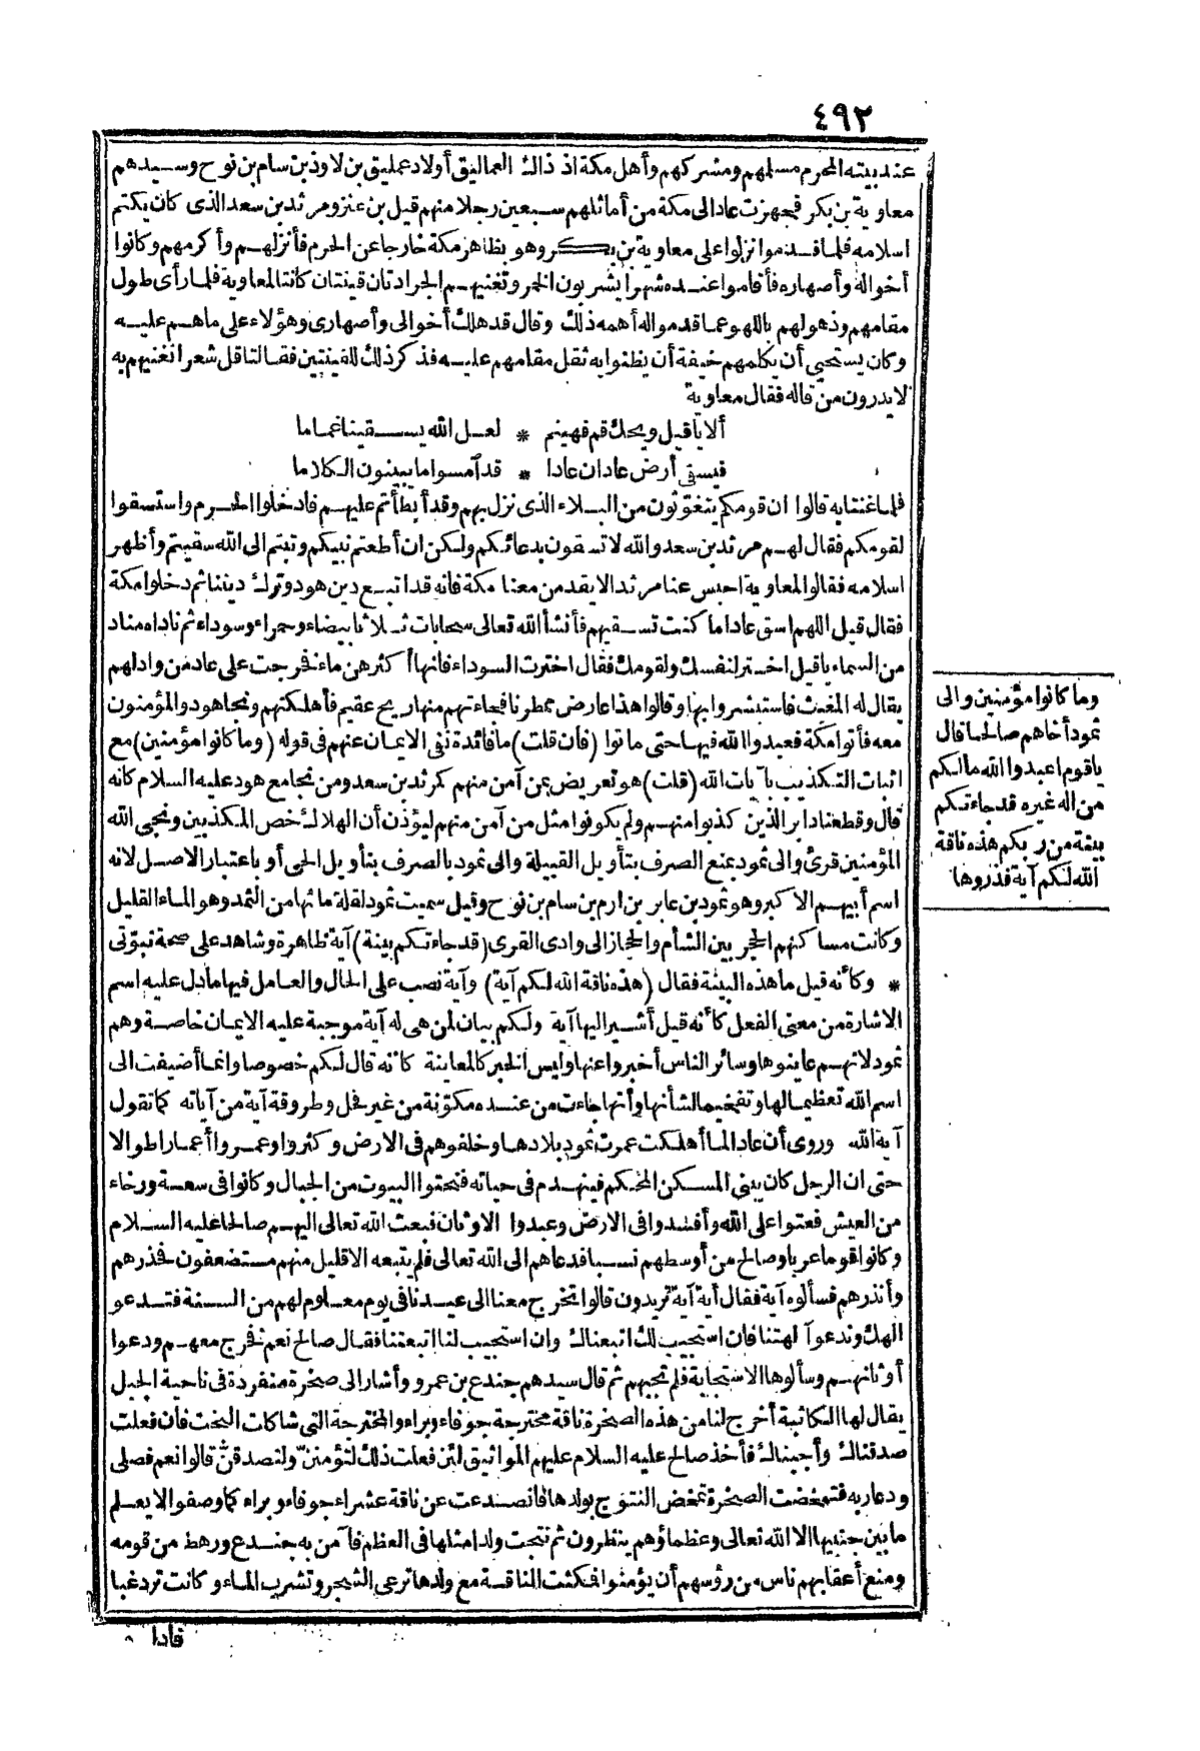 ٤٩٢
عند بيته المحرم مسلمهم ومشركهم وأهل مكة اذ ذاك العماليق أولاد عمليق بن لاوذ بن سام بن نوح وسيدهم
معاوية بن بكر فجهزت عاد الى مكة من أماثلهم سبعين رجلا منهم قيل بن عنز ومرثد بن سعد الذى كان يكتم
اسلامه فلما قدموا نزلوا على معاوية بن بكر وهو بظاهر مكة خارجا عن الحرم فأنزلهم وأكرمهم وكانوا
أخواله وأصهاره فأقاموا عنده شهرا يشربون الخمر وتغنيهم الجرادتان قينتان كانتا لمعاوية فلما رأى طول
مقامهم وذهولهم باللهو عما قدموا له أهمه ذلك وقال قد هلك أخوالى وأصهارى وهؤلاء على ما هم عليه
وكان يستحيى أن يكلمهم خيفة أن يظنوا به ثقل مقامهم عليه فذكر ذلك للقينتين فقالتا قل شعرا نغنيهم به
لا يدرون من قاله فقال معاوية
ألا يا قيل ويحك قم فهينم * لعل الله يسقينا غماما
فيسقى أرض عاد ان عادا * قد آمسوا ما يبينون الكلاما
فلما غنتا به قالوا ان قومكم يتغوثون من البلاء الذى نزل بهم وقد أبطأتم عليهم فادخلوا الحرم واستسقوا
لقومكم فقال لهم مرثد بن سعد والله لا تسقون بدعائكم ولكن ان أطعتم نبيكم وتبتم الى الله سقيتم وأظهر
اسلامه فقالوا لمعاوية احبس عنا مرثدا لا يقدمن معنا مكة فانه قد اتبع دين هود وترك ديننا ثم دخلوا مكة
فقال قيل اللهم اسق عادا ما كنت تسقيهم فأنشأ الله تعالى سحابات ثلاثا بيضاء وحمراء وسوداء ثم ناداه مناد
من السماء يا قيل اختر لنفسك ولقومك فقال اخترت السوداء فانها أكثرهن ماء فخرجت على عاد من واد لهم
يقال له المغيث فاستبشروا بها وقالوا هذا عارض ممطرنا فجاءتهم منها ريح عقيم فأهلكتهم ونجا هود والمؤمنون
معه فأتوا مكة فعبدوا الله فيها حتى ماتوا (فان قلت) ما فائدة نفى الايمان عنهم فى قوله (وما كانوا مؤمنين) مع
اثبات التكذيب بآيات الله (قلت) هو تعريض بمن آمن منهم كمرثد بن سعد ومن نجا مع هود عليه السلام كانه
قال وقطعنا دابر الذين كذبوا منهم ولم يكونوا مثل من آمن منهم ليؤذن أن الهلاك خص المكذبين ونجى الله
المؤمنين قرئ والى ثمود بمنع الصرف بتأويل القبيلة والى ثمود بالصرف بتأويل الحى أو باعتبار الاصل لانه
اسم أبيهم الاكبر وهو ثمود بن عابر بن ارم بن سام بن نوح وقيل سميت ثمود لقلة مائها من الثمد وهو الماء القليل
وكانت مساكنهم الحجر بين الشأم والحجاز الى وادى القرى (قد جاءتكم بينة) آية ظاهرة وشاهد على صحة نبوتى
* وكأنه قيل ما هذه البينة فقال (هذه ناقة الله لكم آية) وآية نصب على الحال والعامل فيها ما دل عليه اسم
الاشارة من معنى الفعل كأنه قيل أشير اليها آية ولكم بيان لمن هى له آية موجبة عليه الايمان خاصة وهم
ثمود لانهم عاينوها وسائر الناس أخبروا عنها وليس الخبر كالمعاينة كانه قال لكم خصوصا وانما أضيفت الى
اسم الله تعظيما لها وتفخيما لشأنها وأنها جاءت من عنده مكونة من غير فحل وطروقة آية من آياته كما تقول
آية الله وروى أن عادا لما أهلكت عمرت ثمود بلادها وخلفوهم فى الارض وكثروا وعمروا أعمارا طوالا
حتى ان الرجل كان يبنى المسكن المحكم فينهدم فى حياته فنحتوا البيوت من الجبال وكانوا فى سعة ورخاء
من العيش فعتوا على الله وأفسدوا فى الارض وعبدوا الاوثان فبعث الله تعالى اليهم صالحا عليه السلام
وكانوا قوما عربا وصالح من أوسطهم نسبا فدعاهم الى الله تعالى فلم يتبعه الا قليل منهم مستضعفون فحذرهم
وأنذرهم فسألوه آية فقال أية آية تريدون قالوا تخرج معنا الى عيدنا فى يوم معلوم لهم من السنة فتدعو
الهك وندعو آلهتنا فان استجيب لك اتبعناك وان استجيب لنا اتبعتنا فقال صالح نعم فخرج معهم ودعوا
أوثانهم وسألوها الاستجابة فلم تجبهم ثم قال سيدهم جندع بن عمرو وأشار الى صخرة منفردة فى ناحية الجبل
يقال لها الكاثبة أخرج لنا من هذه الصخرة ناقة مخترجة جوفاء وبراء والمخترجة التى شاكات البخت فان فعلت
صدقناك وأجبناك فأخذ صالح عليه السلام عليهم المواثيق لئن فعلت ذلك لتؤمنن ولتصدقن قالوا نعم فصلى
ودعا ربه فتمخضت الصخرة تمخض النتوج بولدها فانصدعت عن ناقة عشراء جوفاء وبراء كما وصفوا لا يعلم
ما بين جنبيها الا الله تعالى وعظماؤهم ينظرون ثم نتجت ولدا مثلها فى العظم فآمن به جندع ورهط من قومه
ومنع أعقابهم ناس من رؤسهم أن يؤمنوا فمكثت الناقة مع ولدها ترعى الشجر وتشرب الماء وكانت ترد غبا
فاذا
وما كانوا مؤمنين والى
ثمود أخاهم صالحا قال
يا قوم اعبدوا الله ما لكم
من اله غيره قد جاءتكم
بينة من ربكم هذه ناقة
الله لكم آية فذروها